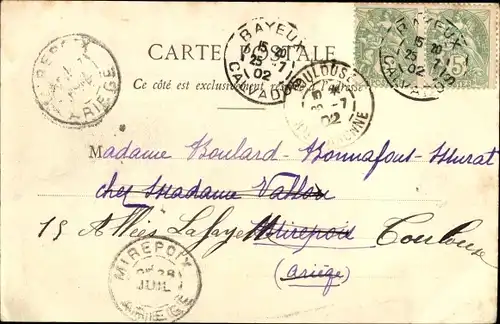 CARTE POSTALE
Ce côté est exclusivement réservé à l'adresse
BAYEUX
15 20
25 -7
02
CALVADOS
BAYEUX
15 20
25 -7
02
CALVADOS
5
TOULOUSE
-7
02
GARONNE
MIREPOIX
ARIEGE
Madame Boulard-Bonnafous-Murat
chez Madame Vallou
15 Allées Lafayette Mirepoix Toulouse
(Ariège)
MIREPOIX
28
JUIL
ARIEGE